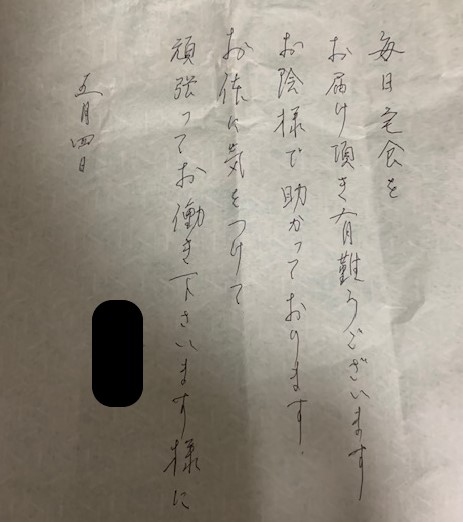 毎日宅食を
お届け頂き有難うございます
お陰様で助かっております.
お体に気をつけて
頑張ってお働き下さいます様に
五月四日